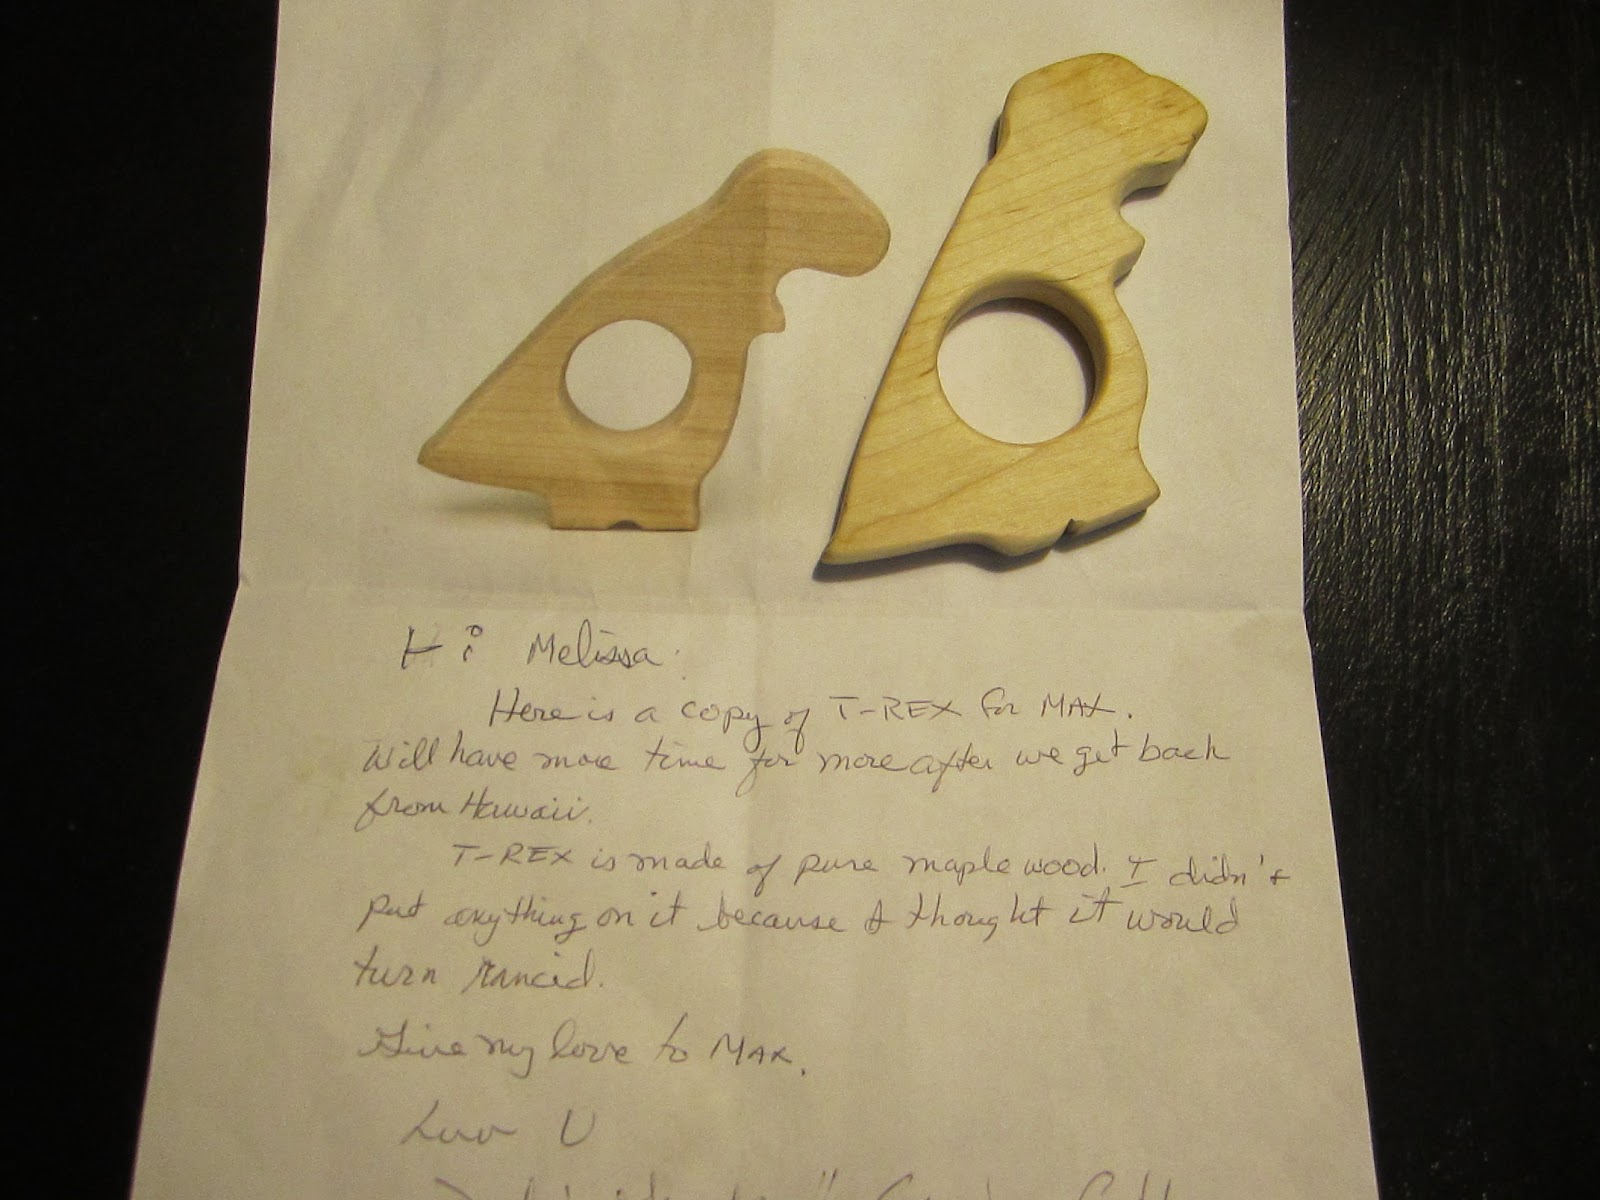 Hi Melissa:
Here is a copy of T-REX for MAX.
Will have more time for more after we get back
from Hawaii.
T-REX is made of pure maple wood. I didn't
put anything on it because I thought it would
turn rancid.
Give my love to MAX.
Luv U